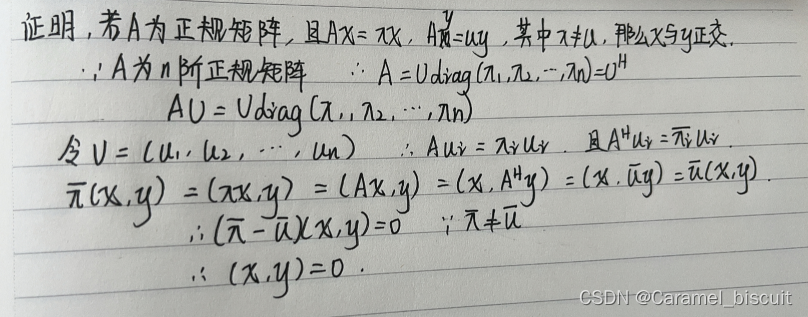 证明,若A为正规矩阵,且Ax=λx,Ay=uy,其中λ≠u,那么x与y正交.
∵A为n阶正规矩阵 ∴A=Udiag(λ1,λ2,…,λn)=U^H
AU=Udiag(λ1,λ2,…,λn)
令U=(u1,u2,…,un) ∴Aui=λiui.且A^Hui=λ̄iui.
λ̄(x,y)=(λx,y)=(Ax,y)=(x,A^Hy)=(x,ūy)=ū(x,y).
∴(λ̄-ū)(x,y)=0 ∵λ̄≠ū
∴(x,y)=0.
CSDN @Caramel_biscuit